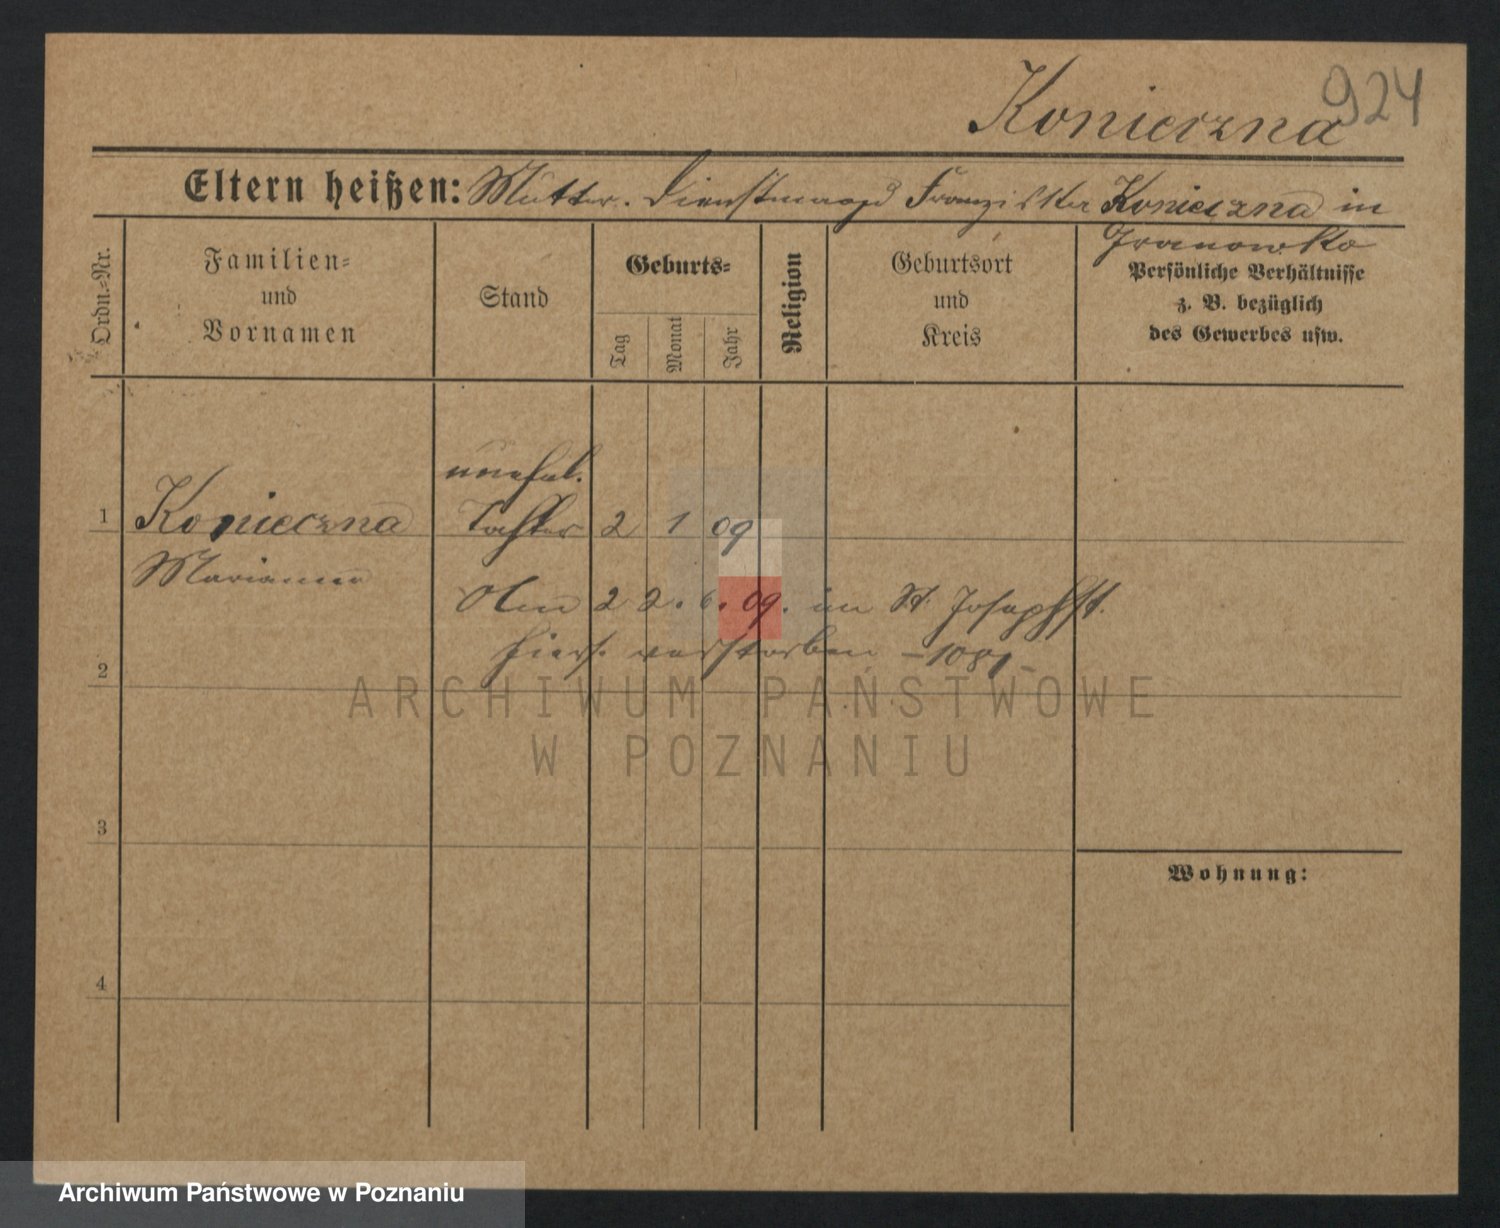 924
Konieczna
Eltern heißen: Mutter. Dienstmagd Franziska Konieczna in
Granowko
Ordn.-Nr.
Familien-
und
Vornamen
Stand
Geburts-
Tag
Monat
Jahr
Religion
Geburtsort
und
Kreis
Persönliche Verhältnisse
z. B. bezüglich
des Gewerbes usw.
unehel.
1 Konieczna Tochter 2 1 09
Marianna
Am 22. 6. 09. im St. Josephst.
hiers. verstorben -1081-
2
ARCHIWUM PAŃSTWOWE
W POZNANIU
3
Wohnung:
4
Archiwum Państwowe w Poznaniu